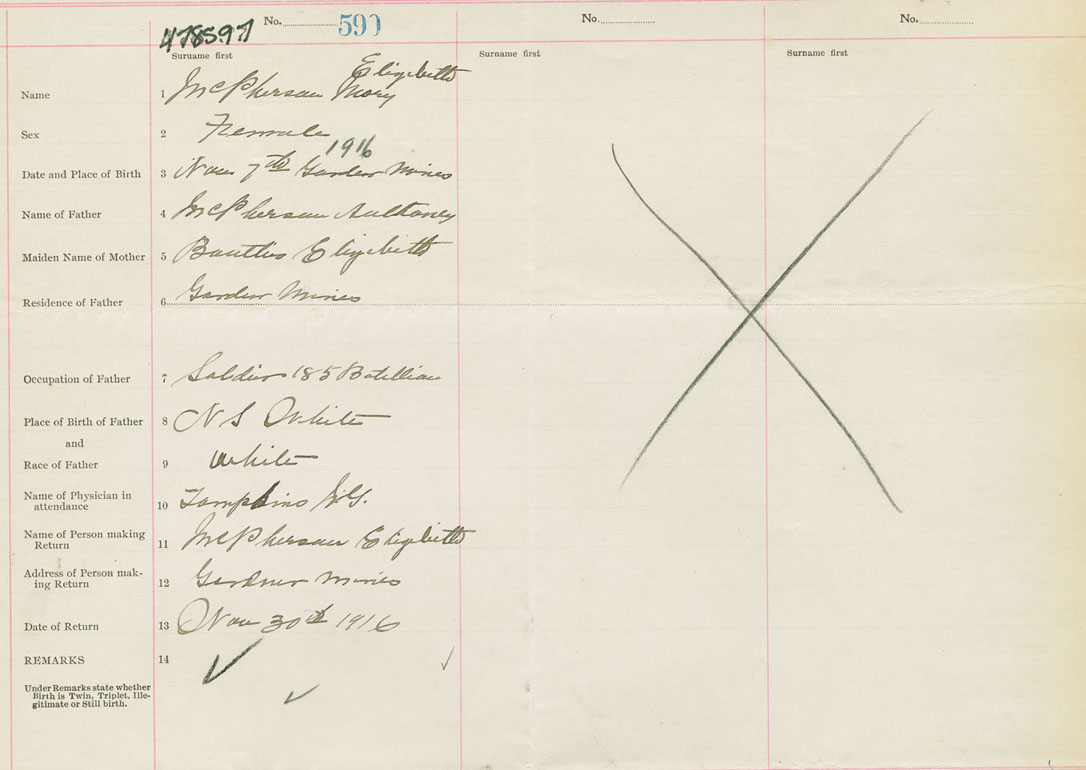 No. 590
No.
No.
478597
Surname first
Surname first
Surname first
Elizebetth
Name 1 McPherson Mary
Sex 2 Female
1916
Date and Place of Birth 3 Nov 7th Garden Mines
Name of Father 4 McPherson Anthoney
Maiden Name of Mother 5 Elizebetth
Residence of Father 6 Garden Mines
Occupation of Father 7 Soldier 185 Batillian
Place of Birth of Father 8 N S White
and
Race of Father 9 White
Name of Physician in
attendance 10 Tompkins
Name of Person making
Return 11 McPherson Elizebetth
Address of Person mak-
ing Return 12 Gardner Mines
Date of Return 13 Nov 30th 1916
REMARKS 14
Under Remarks state whether
Birth is Twin, Triplet, Ille-
gitimate or Still birth.